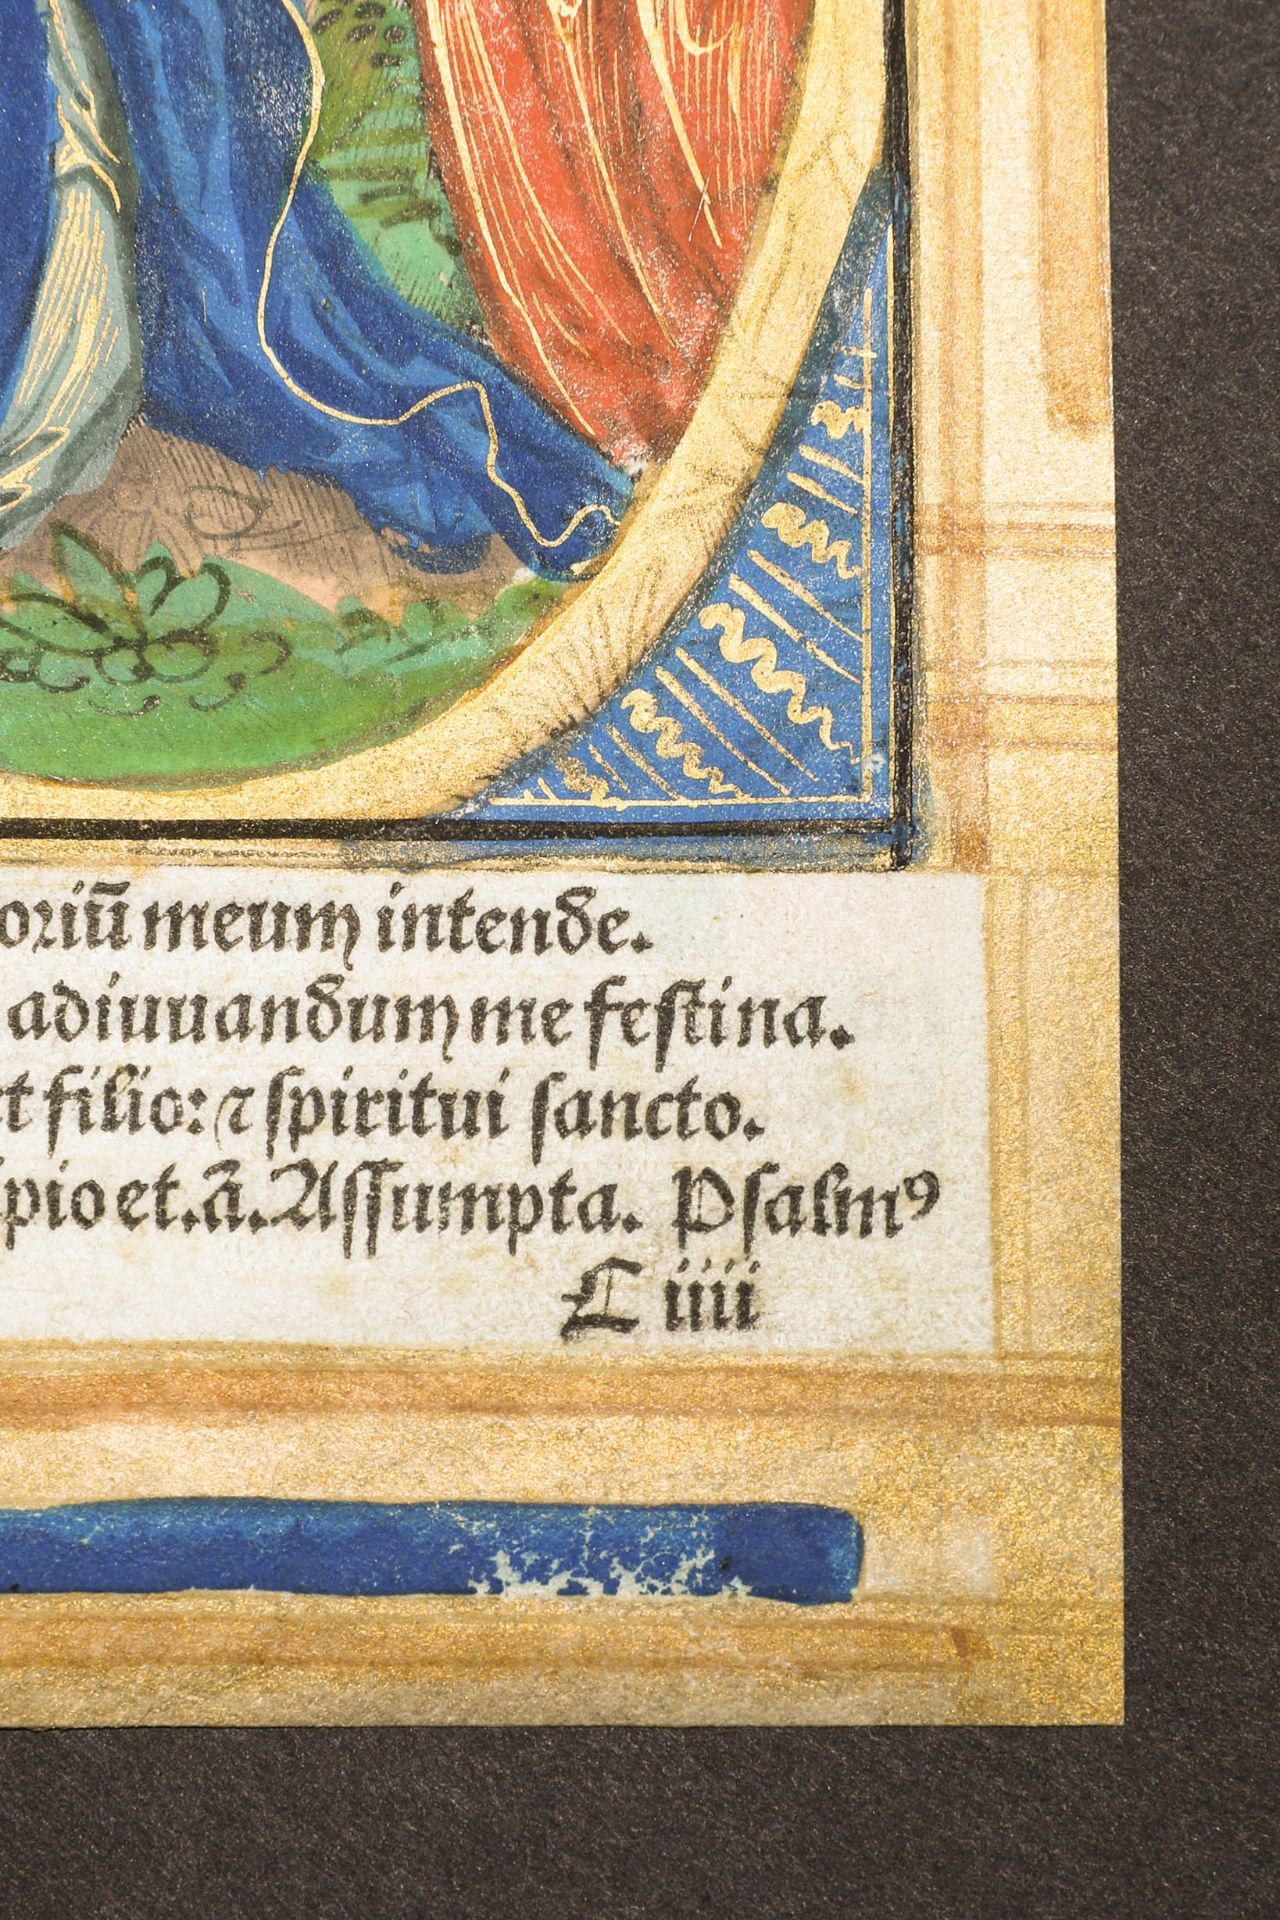 oriū meum intende.
adiuuandum me festina.
et filio: ⁊ spiritui sancto.
pio et.ā. Assumpta. Psalmꝰ
C iiii